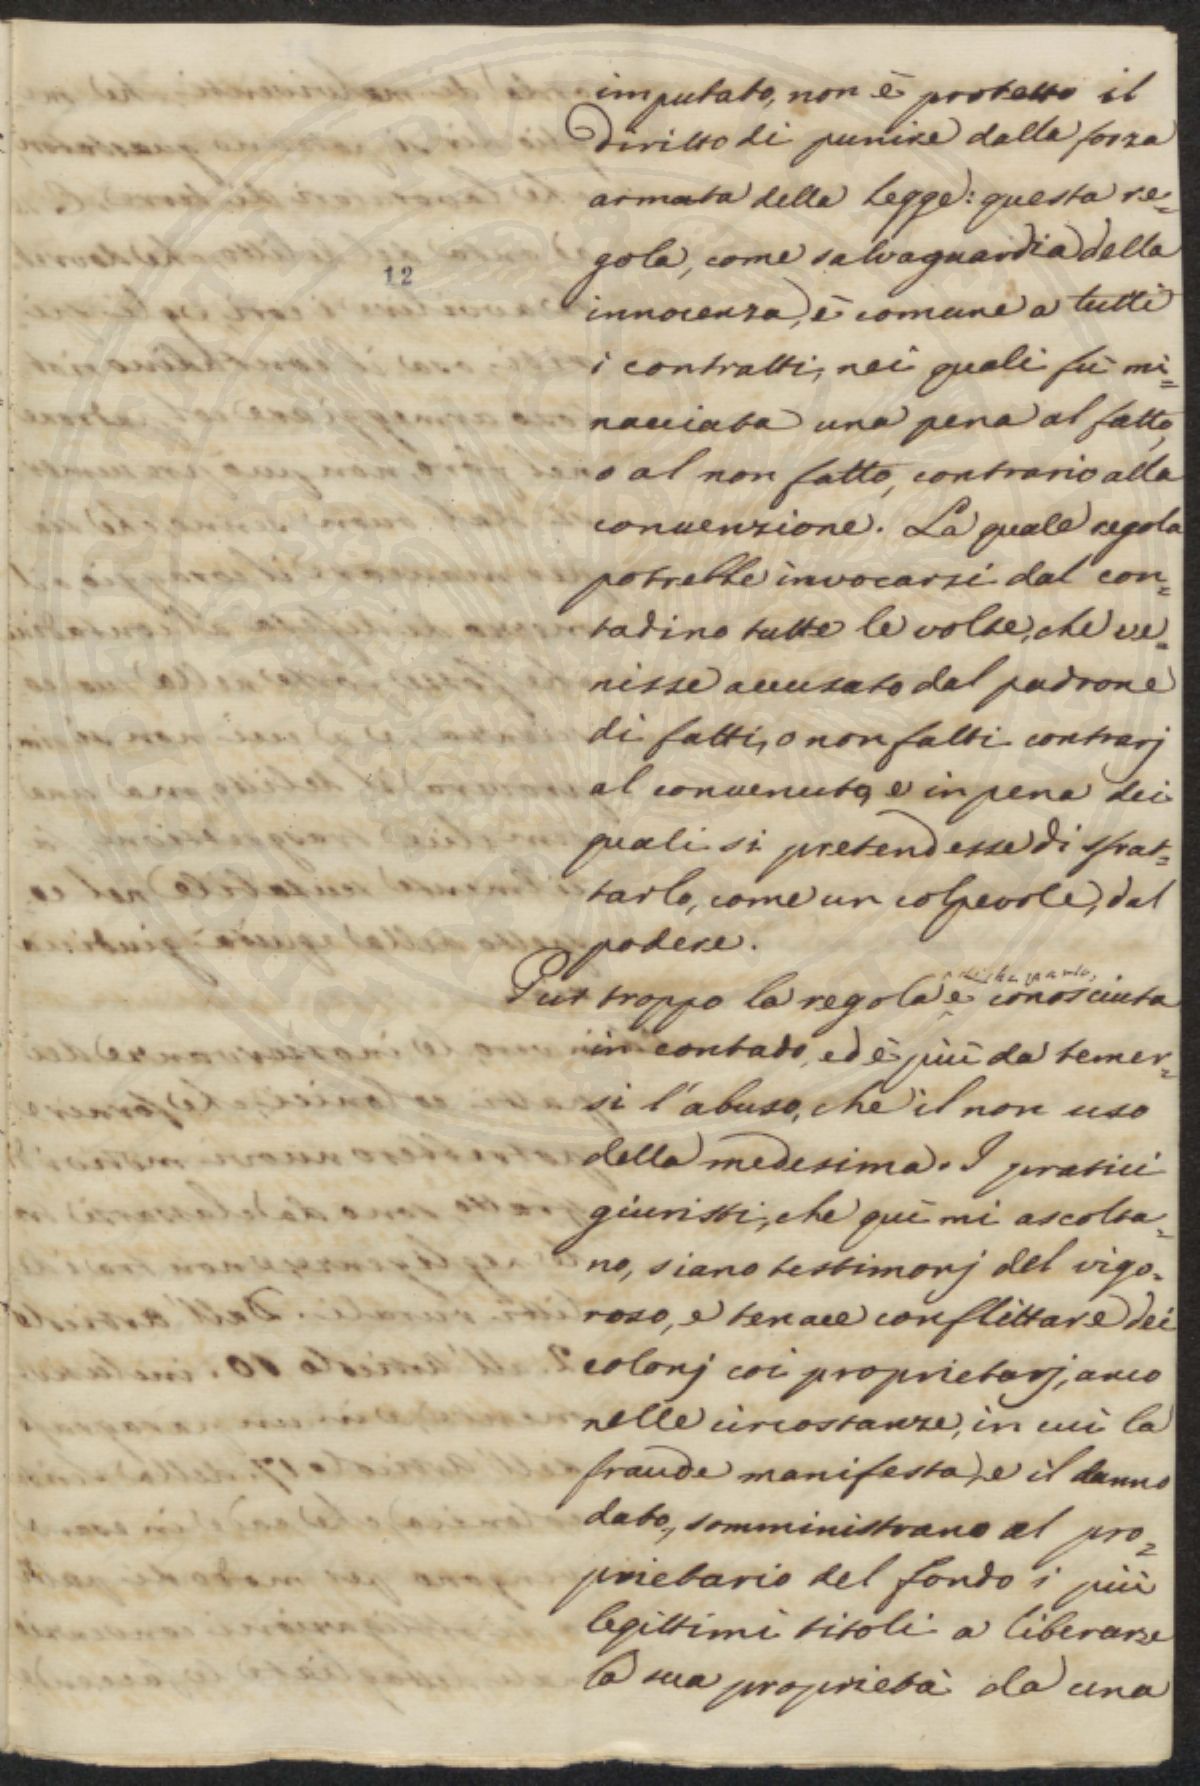 imputato, non è protetto il
diritto di punire dalla forza
armata della legge: questa re=
gola, come salvaguardia della
12
innocenza, è comune a tutti
i contratti, nei quali fù mi=
nacciata una pena al fatto,
o al non fatto, contrario alla
convenzione. La quale regola
potrebbe invocarsi dal con=
tadino tutte le volte, che ve=
nisse accusato dal padrone
di fatti, o non fatti contrarj
al convenuto, e in pena dei
quali si pretendesse di sfrat=
tarlo, come un colpevole, dal
podere.
Pur troppo la regola è conosciuta
in contado, ed è più da temer=
si l'abuso, che il non uso
della medesima. I pratici
giuristi, che quì mi ascolta=
no, siano testimonj del vigo=
roso, e tenace conflittare dei
colonj coi proprietarj, anco
nelle circostanze, in cui la
fraude manifesta, e il danno
dato, somministrano al pro=
prietario del fondo i più
legittimi titoli a liberare
la sua proprietà da una